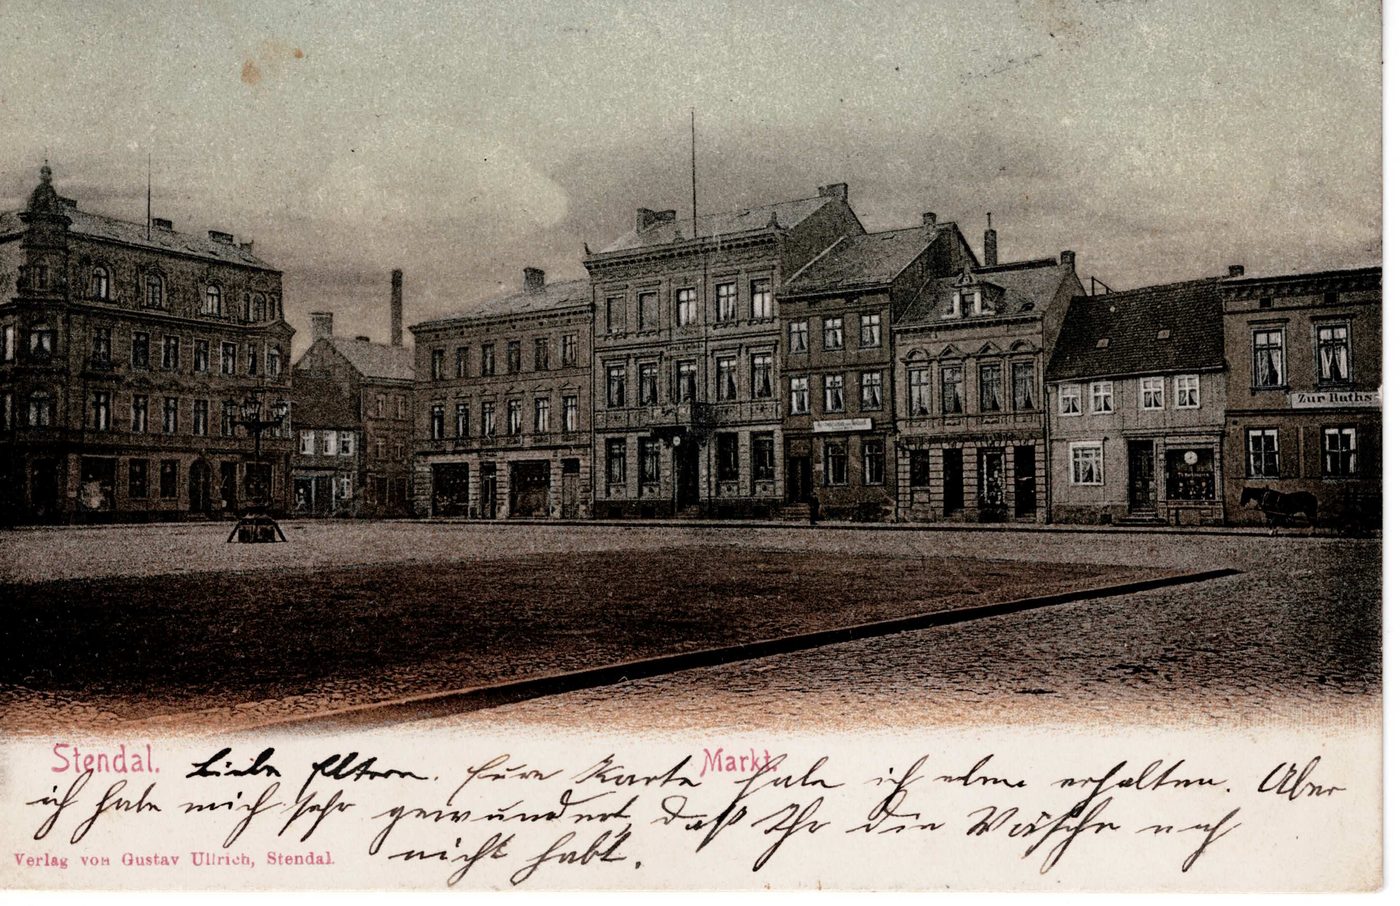 Zur Raths
Stendal. Markt.
Liebe Eltern. Eure Karte habe ich eben erhalten. Aber
ich habe mich sehr gewundert, daß Ihr die Wäsche noch
nicht habt.
Verlag von Gustav Ullrich, Stendal.